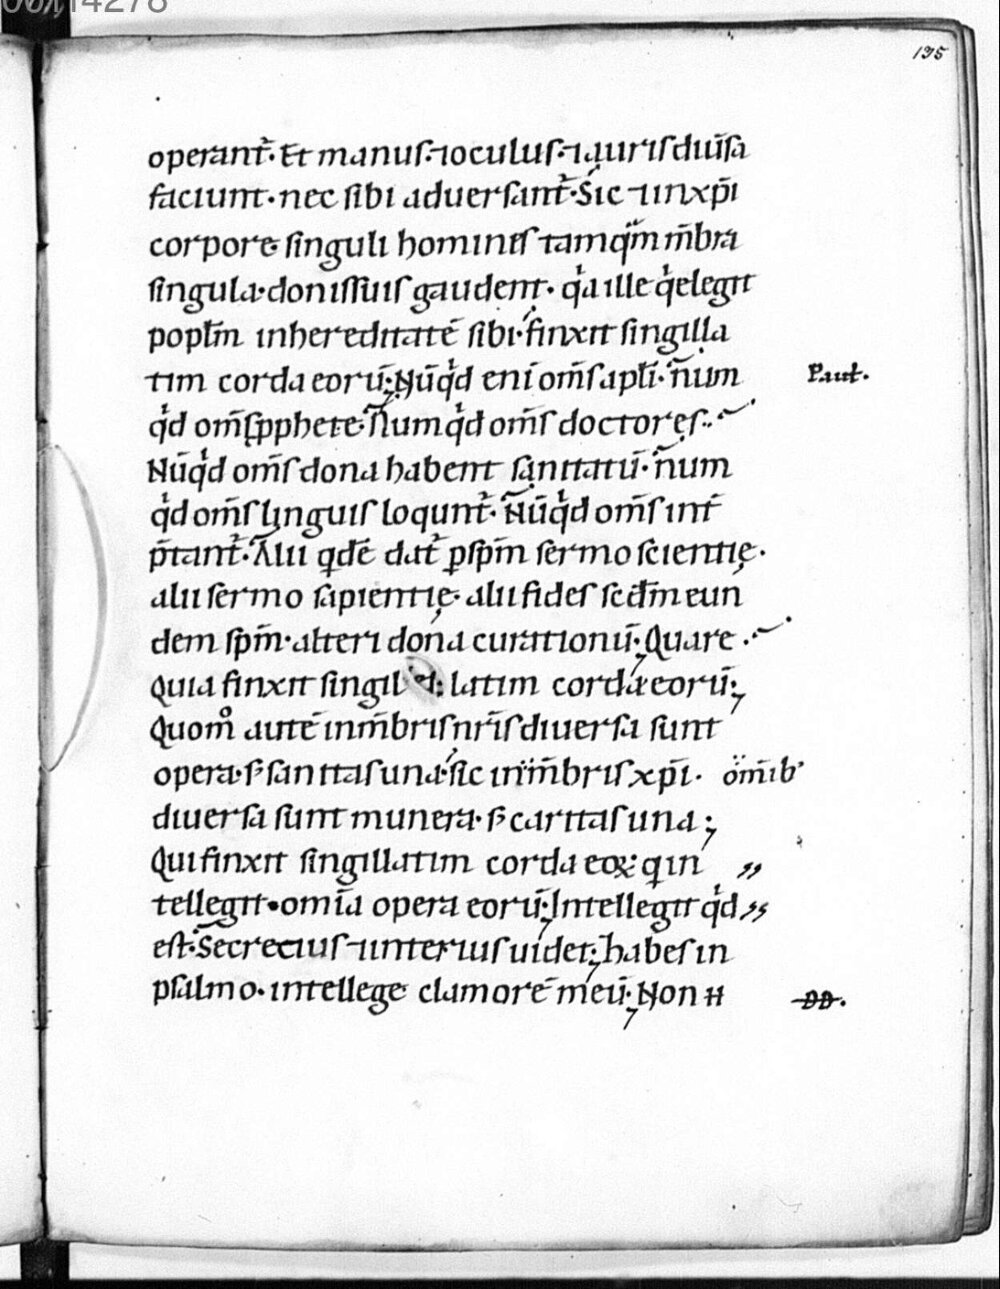 135
operant᷑. Et manus. ⁊oculus. ⁊auris diu̅sa
faciunt. nec sibi aduersant᷑. Sic ⁊inxp̅i
corpore singuli homines tamqͣm m̅bra
singula. donis suis gaudent. qͥa ille qͥ elegit
popl̅m inhereditate̅ sibi. finxit singilla
tim corda eoru̅; Nu̅qͥd eni̅ om̅s apl̅i. num
Paul̅.
qͥd om̅s pphete. Numqͥd om̅s doctores..
Nu̅qͥd om̅s dona habent sanitatu̅. num
qͥd om̅s linguis loqunt᷑. Nu̅qͥd om̅s int̅
p̅tant᷑. Alii qde̅ dat᷑ ꝑ sp̅m sermo scientię.
alii sermo sapientię. alii fides scd̅m eun
dem sp̅m. alteri dona curationu̅; Quare.
Quia finxit singil latim corda eoru̅;
Quomͦ aute̅ inm̅bris nr̅is diuersa sunt
opera. s; sanitas una. sic in m̅bris xp̅i. om̅ib'
diuersa sunt munera. s; caritas una;
Qui finxit singillatim corda eoꝝ q in
tellegit. omi̅a opera eoru̅; Intellegit qͥd
est. Secretius ⁊interius uidet; habes in
psalmo. intellege clamore̅ meu̅; Non
DD.